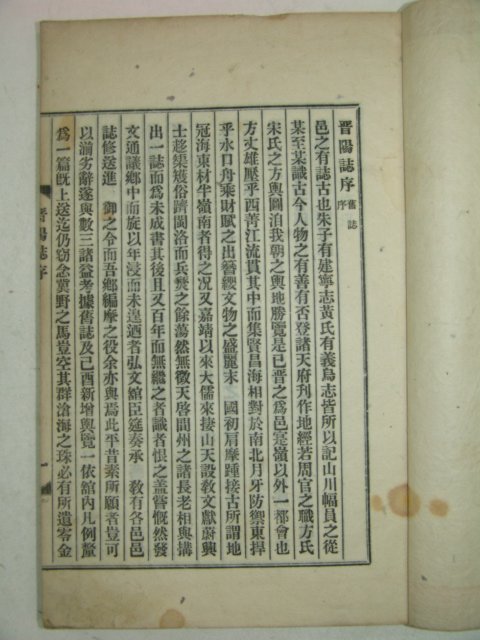 晋陽誌序 舊誌序
邑之有誌古也朱子有建寧志黃氏有義烏志皆所以記山川幅員之從
某至某識古今人物之有善有否登諸天府刊作地經若周官之職方氏
宋氏之方輿圖洎我朝之輿地勝覽是已晋之爲邑寔嶺以外一都會也
方丈雄壓乎西菁江流貫其中而集賢昌海相對於南北月牙防禦東捍
乎水口舟乘財賦之出簪纓文物之盛麗末 國初肩摩踵接古所謂地
冠海東材半嶺南者得之况又嘉靖以來大儒來捿山天設敎文獻蔚興
士趍槼矱俗躋閩洛而兵燹之餘蕩然無徵天啓間州之諸長老相與搆
出一誌而爲未成書其後且又百年而無繼之者識者恨之盖嘗慨然發
文通議鄕中而旋以年浸而未遑迺者弘文舘臣筵奏承 敎有各邑邑
誌修送進 御之令而吾鄕編摩之役余亦與焉此平昔素所願者豈可
以湔劣辭遂與數三諸益考據舊誌及己酉新增輿覽一依舘內凡例釐
爲一篇旣上送迄仍窃念冀野之馬豈空其群滄海之珠必有所遺零金
晋陽誌序 一